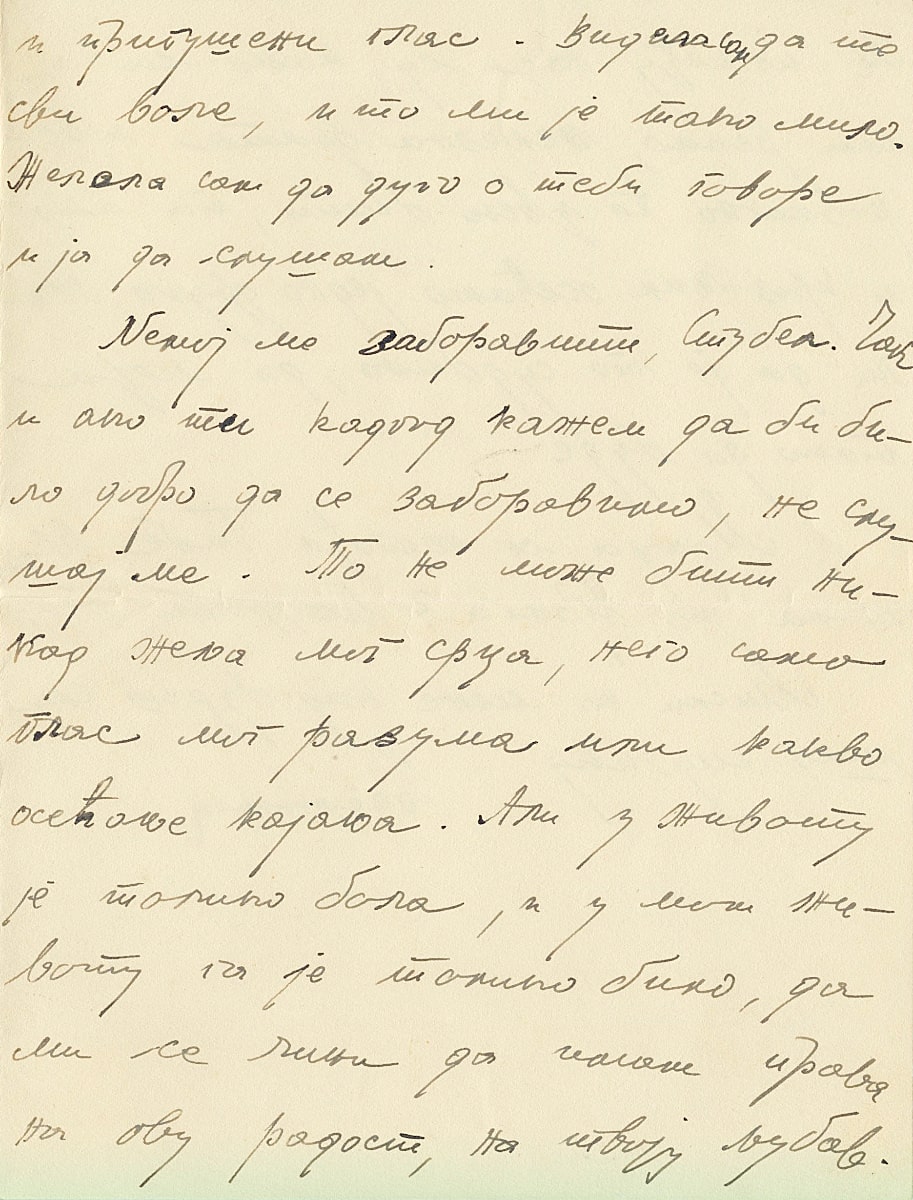 и притушени глас. Видела сам да те
сви воле, и то ми је тако мило.
Желела сам да дуго о теби говоре
и ја да слушам.
Немој ме заборавити, Чак
и ако ти кадгод кажем да би би-
ло добро да се заборавимо, не слу-
шај ме. То не може бити ни-
кад жеља мог срца, него само
глас мог разума или какво
осећање кајања. Али у животу
је толико бола, и у мом жи-
воту га је толико било, да
ми се чини да имам права
на ову радост, на твоју љубав.